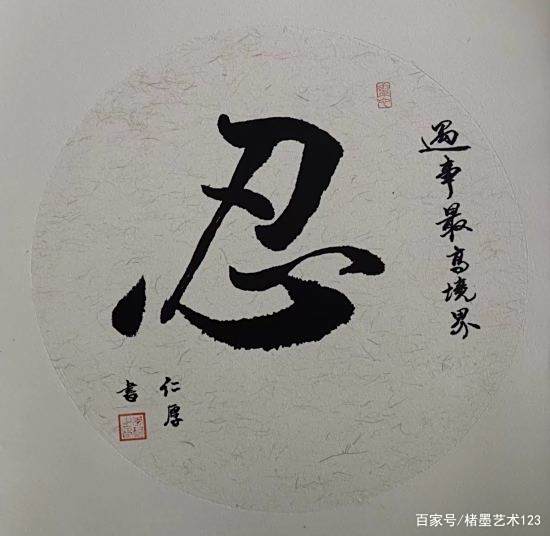 遇事最高境界
忍
仁厚
书
百家号/楮墨艺术123